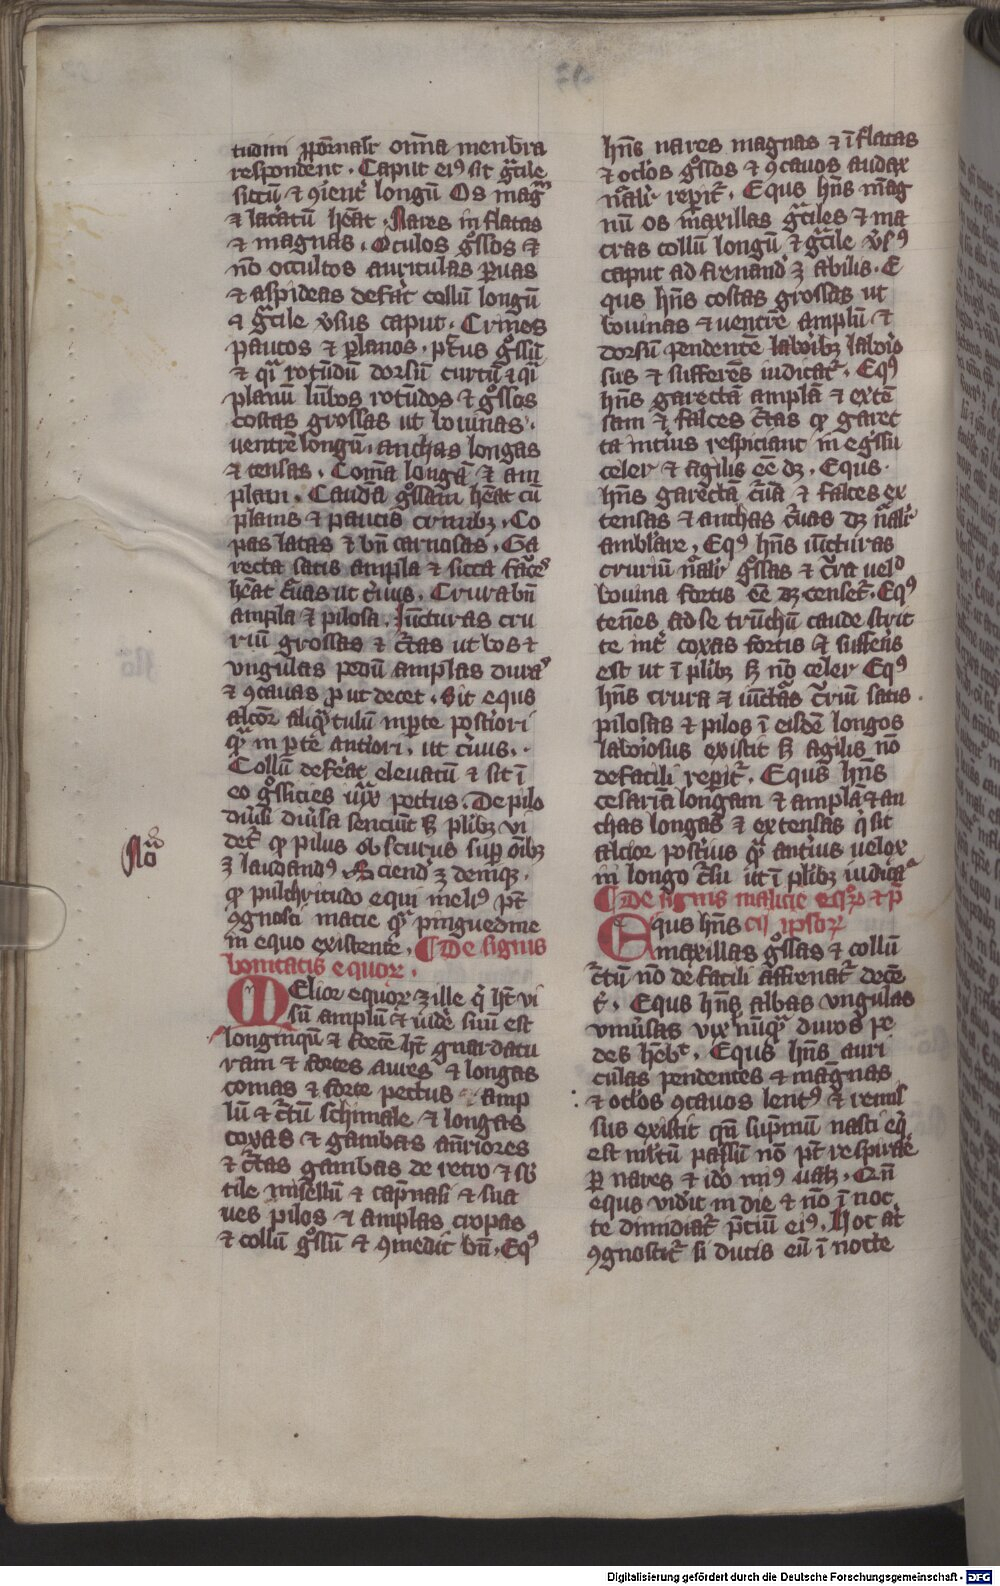 tudini pporcōnalr̄ om̄a menbra
respondent. Caput ei⁹ sit gͣcile
siccū & ꝯienr̄ longū Os magͫ
& lacatū heāt. Nares inflatas
& magnas. Oculos gͦssos &
nō occultos auriculas ꝑuas
& aspideas defāt collū longū
& gͣcile v̄sus caput. Crines
paucos & planos. pctͫus gͦssū
& qͣi rotūdū dorsū curtū & qͣi
planū lūbos rotūdos & gͦssos
costas grossas ut bouinas.
ventrē longū. anchas longas
& tensas. Comā longā & am
plam. Caudā gͦssam heāt cū
planis & paucis crinibꝫ. Co
xas latas & bn̄ carnosas. Ga
recta satis ampla & sicca falces
heāt c̄uas ut c̄uus. Crura bn̄
ampla & pilosa. Iūcturas cru
riū grossas & c̄tas ut bos &
vngulas pedū amplas duras
& ꝯcauas ꝓut decet. Sit equus
alcōr aliqͣtulū in ꝑte postiori
qͣ in ꝑte antiori. ut c̄uus.
Collū defēat eleuatū & sit ī
eo gͦssicies iuxͣ pectus. De pilo
diūsi diūsa senciūt sꝫ plibꝫ vi
det̄ ꝙ pilus obscurus sup oībꝫ
ꝫ laudand⁹. Sciend ꝫ demꝗ.
ꝙ pulchritudo equi meli⁹ pt̄
ꝯgnosci macie qͣ pinguedine
in equo existente. De signis
bonitatis equoꝝ.
Melior equoꝝ ꝫ ille qͥ ht̄ vi
sū amplū & uidē suū est
longinquū & fortē ht̄ guardatu
ram & fortes aures & longas
comas & forte pectus amp
lū & c̄tū schinale & longas
coxas & gambas an̄riores
& c̄tas gambas de retro & sb
tile musellū & capnasi & sua
ues pilos & amplas cropas
& collū gͦssū & ꝯmedit bn̄. Eq⁹
Noͭ
hn̄s nares magnas & īflatas
& oclōs gͦssos & ꝯcauos audax
nālr̄ reperit̄. Equs hn̄s mag
nū os maxillas gͣciles & ma
cras collū longū & gͣcile v̄s⁹
caput ad frenand ꝫ abilis. E
qus hn̄s costas grossas ut
bouinas & ventrē amplū &
dorsū pendentē laboribꝫ laborio
sus & sufferēs iudicat̄. Eq⁹
hn̄s garectā amplā & extē
sam & falces c̄tas ꝙ garec
ta intius respiciant in egͤssu
celer & agilis eē dꝫ. Equs
hn̄s garectā c̄uā & falces ex
tensas & anchas c̄uas dꝫ nālr̄
amblare. Eq⁹ hn̄s iūcturas
cruriū nālr̄ gͦssas & c̄ta velͦ
bouina fortis eē dꝫ censet̄. Eq⁹
tenēs ad se trūchū caude stric
te int̄ coxas fortis & sufferīs
est ut ī plibꝫ sꝫ nō celer Eq⁹
hn̄s crura & iūctās c̄riū satis
pilosas & pilos ī eisdē longos
laboriosus existit sꝫ agilis nō
defacili reperit̄. Equs hn̄s
cesariā longam & amplā & an
chas longas & extensas qͥ sit
alcior postius qͣ antius velox
in longo c̄su ut ī plibꝫ iudicaͭ
De signis malicie equoꝝ & ꝑ
Equs hn̄s cij ipsoꝝ
maxillas gͦssas & collū
c̄tū nō de facili affrenat̄ decē
t̄. Equs hn̄s albas vngulas
vniūsas vix nūqͣ duros pe
des hēbͭ. Equs hn̄s auri
culas pendentes & magnas
& oclōs ꝯcauos lent⁹ & remis
sus existit qn̄ supmū nasi eqͥ
est nīs tū passū nō pt̄ respirare
ꝑ nares & idō min⁹ valꝫ. Qn̄
equs videt in die & nō ī noc
te dimidiat̄ p̄ciū ei⁹. Hoc at̄
ꝯgnoscit̄ si ducis eū ī nocte
Digitalisierung gefördert durch die Deutsche Forschungsgemeinschaft - DFG